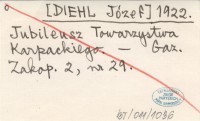 [DIEHL Józef] 1922.
Jubileusz Towarzystwa
Karpackiego — Gaz.
Zakop. 2, na 29.